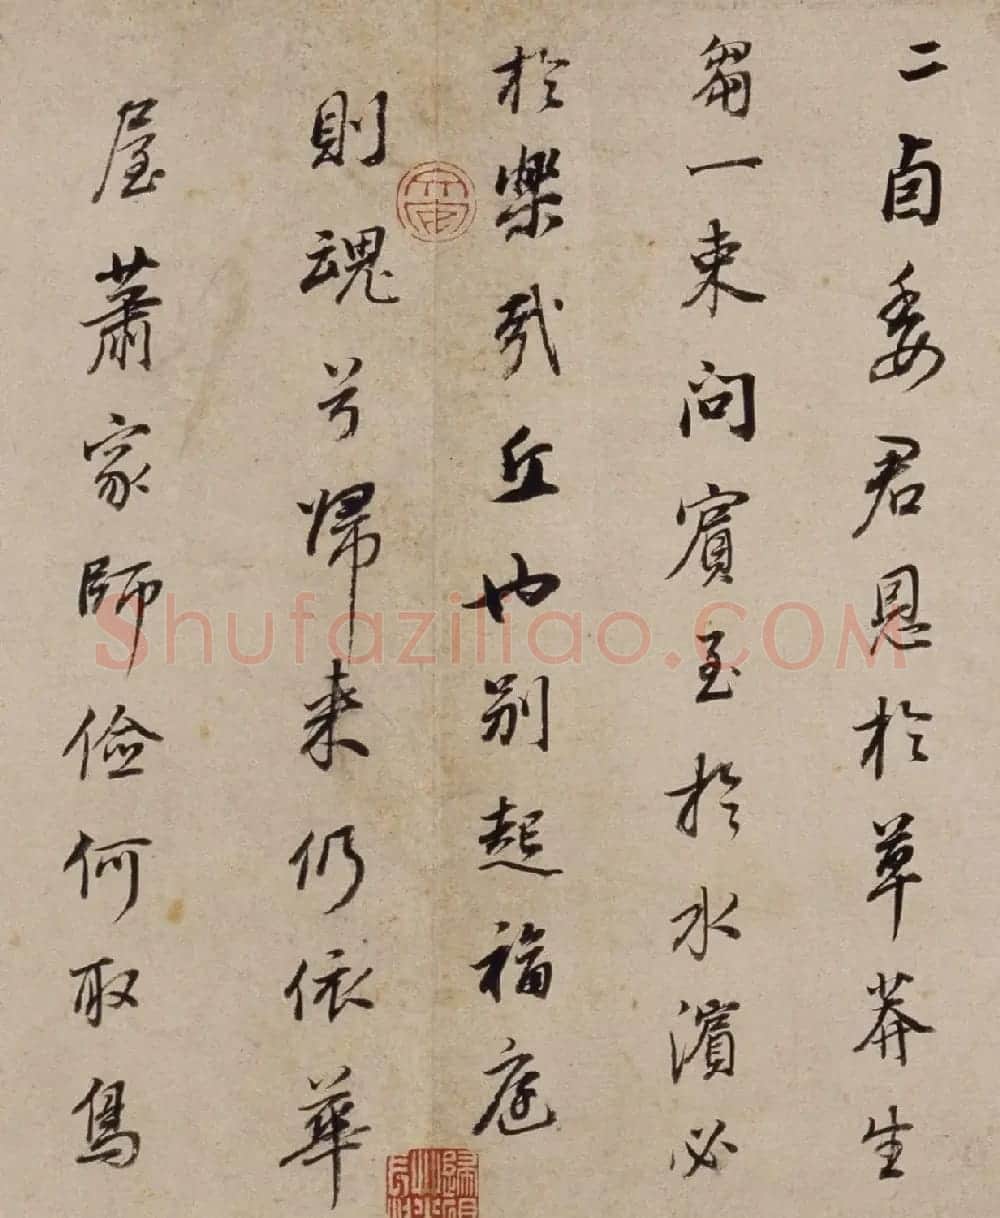 二卣委君恩於草莽生
芻一束問賓至於水濱必
於樂哉丘也別起福庭
則魂兮歸来仍依華
屋蕭家師儉何取鳥
Shufaziliao.COM